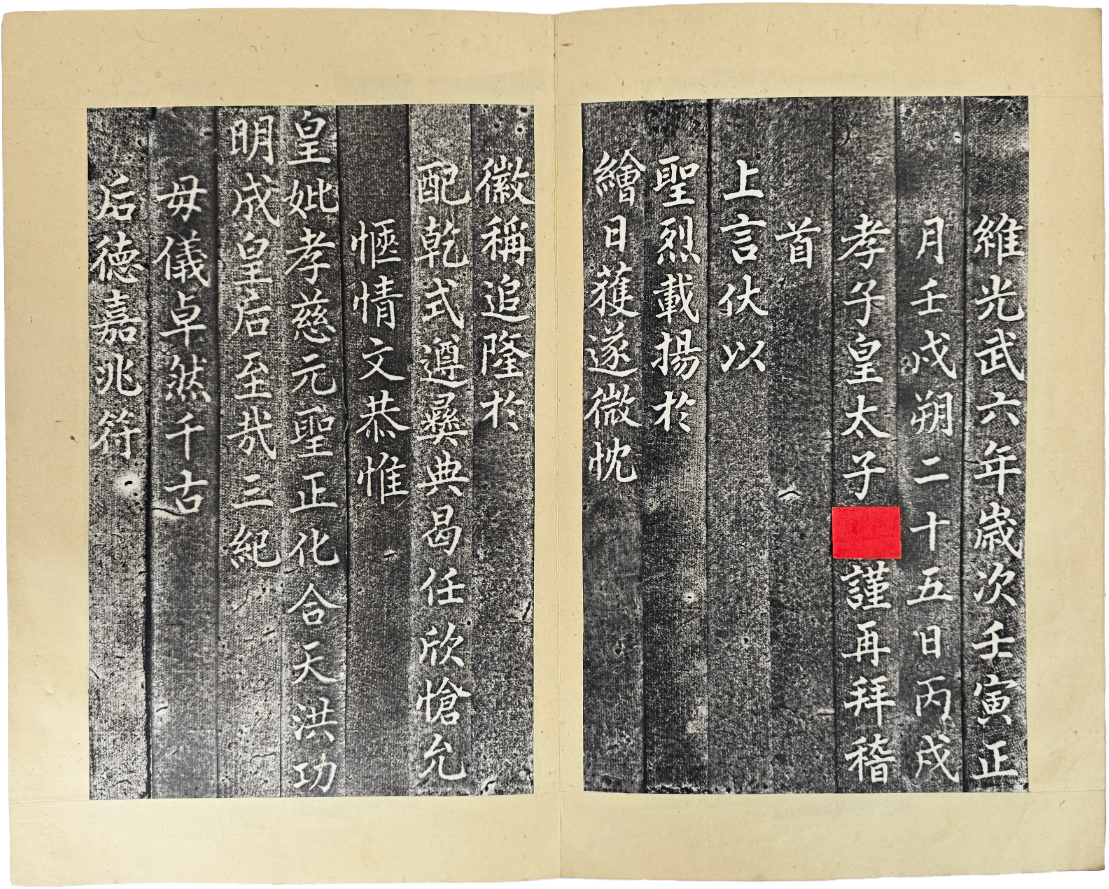 維光武六年歲次壬寅正
月壬戌朔二十五日丙戌
孝子皇太子謹再拜稽
首
上言伏以
聖烈載揚於
繪日獲遂微忱
徽稱追隆於
配乾式遵彝典曷任欣愴允
愜情文恭惟
皇妣孝慈元聖正化合天洪功
明成皇后至哉三紀
母儀卓然千古
后德嘉兆符